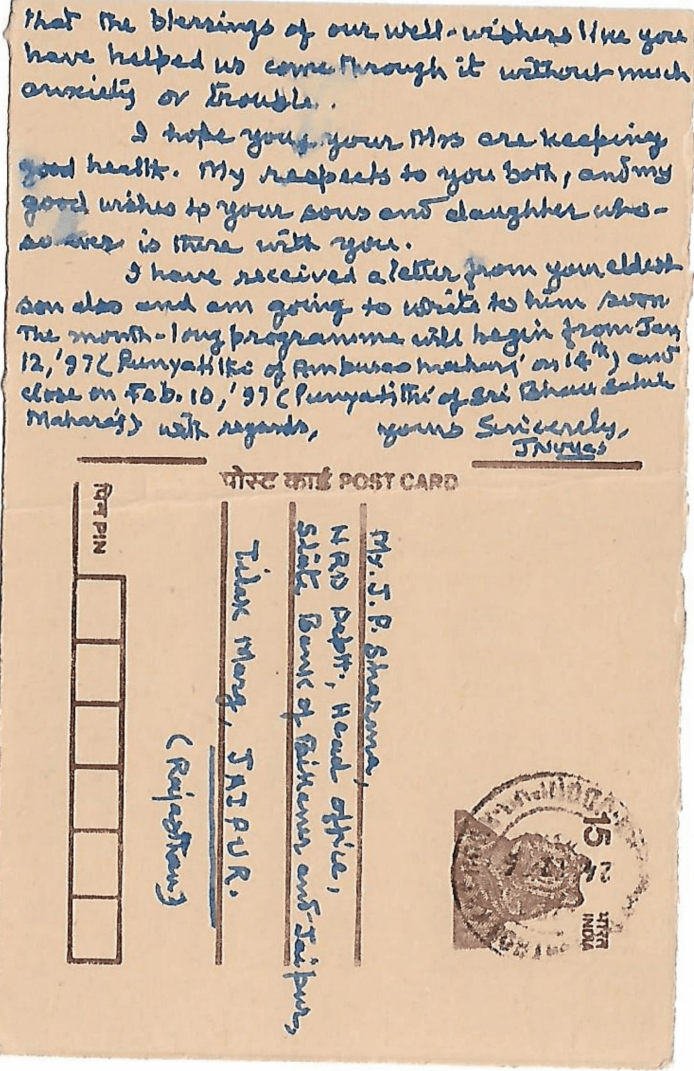 that the blessings of our well-wishers like you
have helped us come through it without much
anxiety or trouble.
I hope you, your Mrs are keeping
good health. My respects to you both, and my
good wishes to your sons and daughter who-
so ever is there with you.
I have received a letter from your eldest
son also and am going to write to him soon
The month-long programme will begin from Jan
12,'97 (Punyatithi of Amburao Maharaj on 14th) and
close on Feb. 10,'97 (Punyatithi of Sri Bhausaheb
Maharaj) with regards, yours Sincerely,
JNVyas
पोस्ट कार्ड POST CARD
पिन PIN
Mr. J. P. Sharma,
HRD Deptt., Head Office,
State Bank of Bikaner and Jaipur,
Tilak Marg, JAIPUR.
(Rajasthan)
15
भारत
INDIA